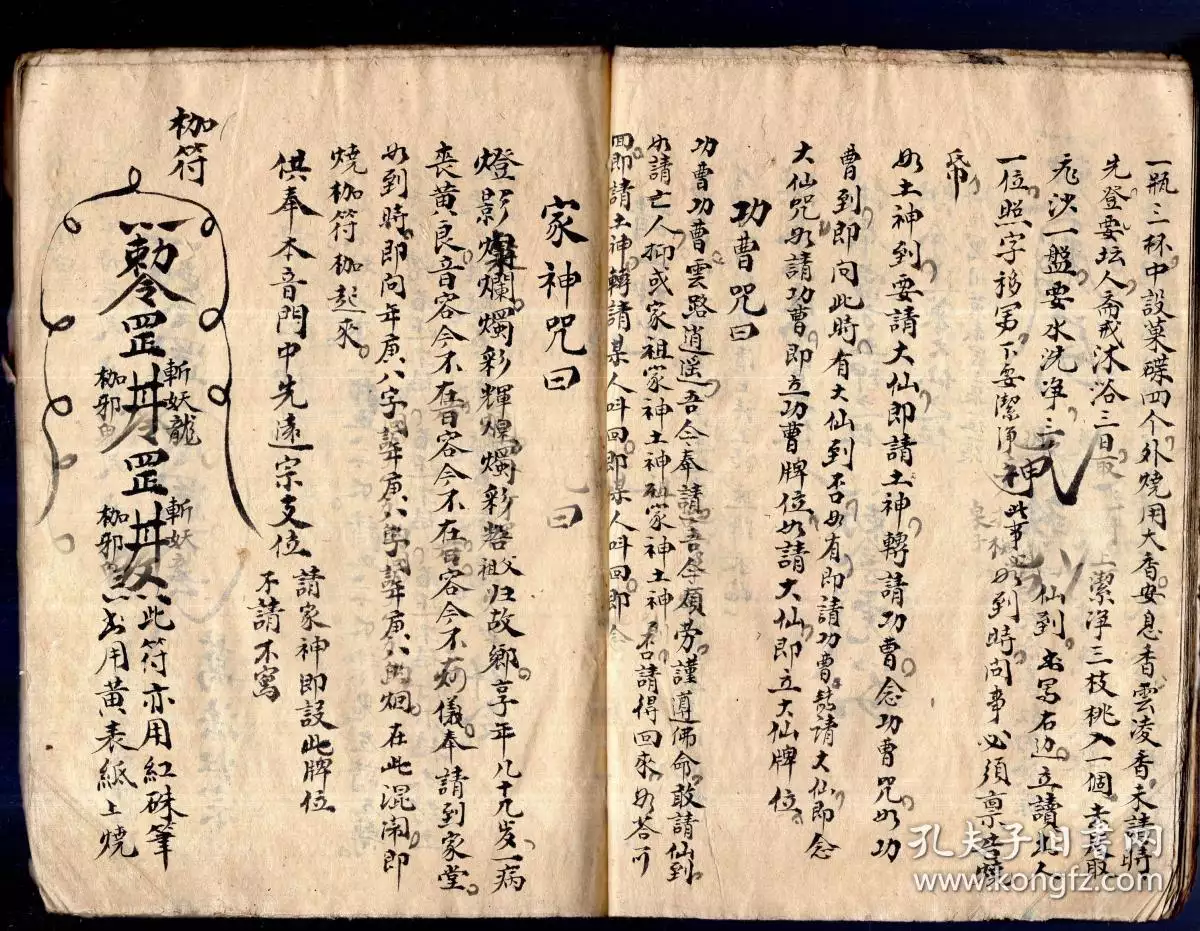 一瓶三杯中設菓碟四个外燒用大香安息香雲凌香未請時
先登要坛人斋戒沐浴三日
沙一盤要水洗净三 上潔淨三枝桃入一個
仙到 写右边立讀
一位照字 要潔淨 神 此事 到時问事必須禀告
帋
如土神到要請大仙即請土神轉請功曹念功曹咒如功
曹到即问此時有大仙到否如有即請功曹 請大仙即念
大仙咒如請功曹即立功曹牌位如請大仙即立大仙牌位
功曹咒曰
功曹功曹雲路逍遥吾今奉請吾今煩劳謹遵佛命敢請仙到
如請亡人抑或家祖家神土神 家神土神否請得回來如若
回即請土神轉請某人呌回即某人呌回即念
家神咒曰
燈影燦爛燭彩輝煌燭彩 父祖归故鄉享年八十九岁一病
丧黄良音容今不在音容今不在音容今不 儀奉請到家堂
如到時即向年庚八字 年庚八字 年庚八 在此混闹即
燒枷符枷起來
供奉本音門中先遠宗支位
請家神即設此牌位
不請不寫
枷符
勅令罡
斬妖龍
枷邪鬼
罡
斬妖
枷邪
此符亦用紅硃筆
用黄表紙上燒
孔夫子旧书网
www.kongfz.com